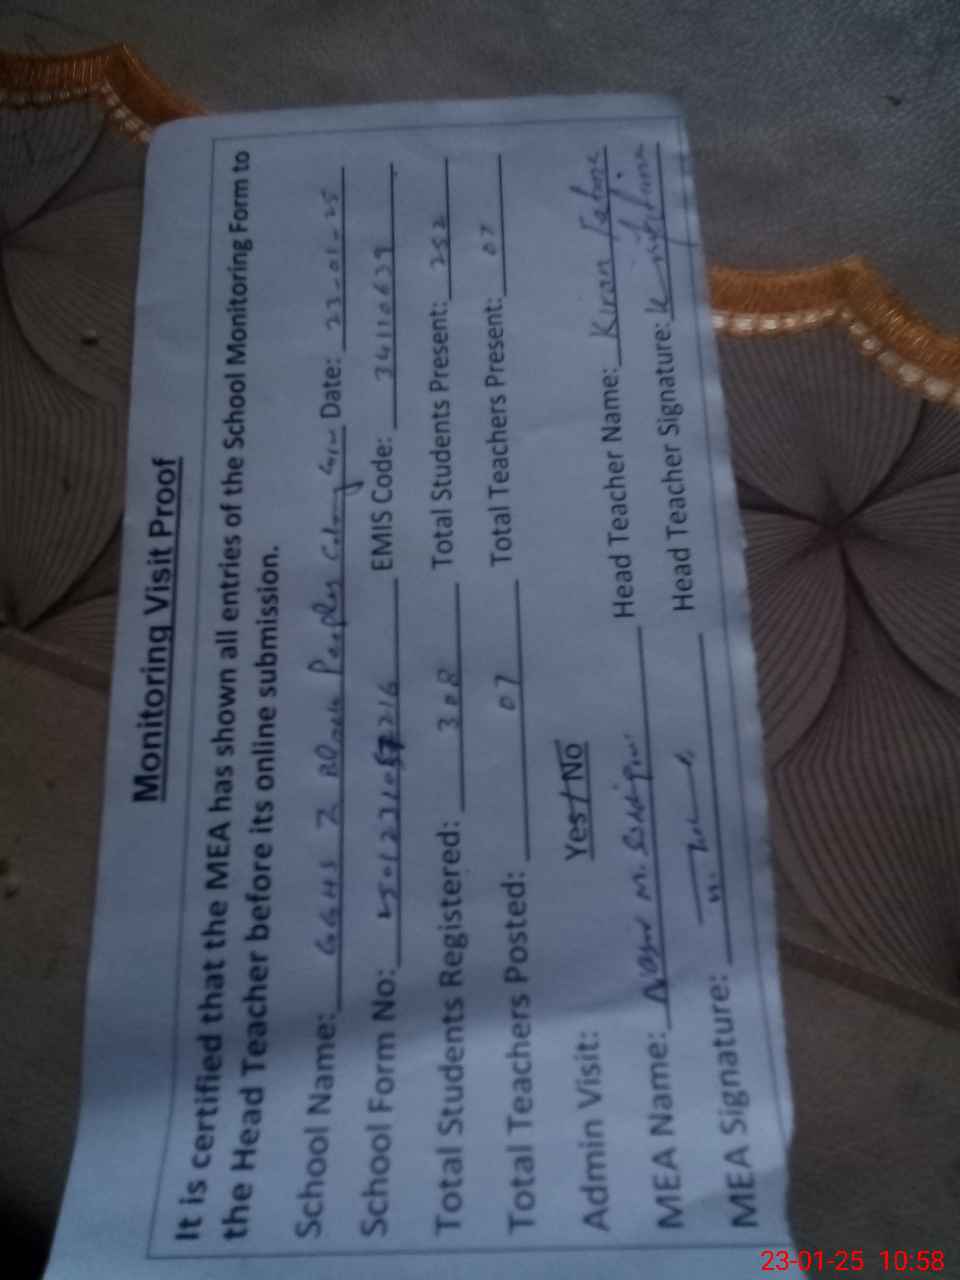 Monitoring Visit Proof
It is certified that the MEA has shown all entries of the School Monitoring Form to
the Head Teacher before its online submission.
School Name: GGHS Z Block Peoples Colony Date: 23-01-25
School Form No: EMIS Code: 34110639
Total Students Registered: 308 Total Students Present: 252
Total Teachers Posted: 07 Total Teachers Present: 07
Admin Visit: Yes/No
MEA Name: M. Head Teacher Name: Kiran Fatime
MEA Signature: Head Teacher Signature:
23-01-25 10:58